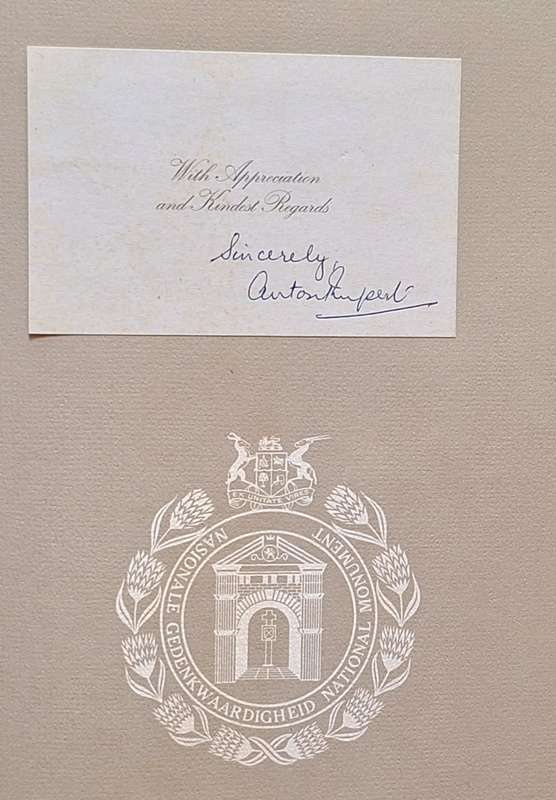 With Appreciation
and Kindest Regards
Sincerely,
Anton Rupert
EX UNITATE VIRES
NASIONALE GEDENKWAARDIGHEID NATIONAL MONUMENT